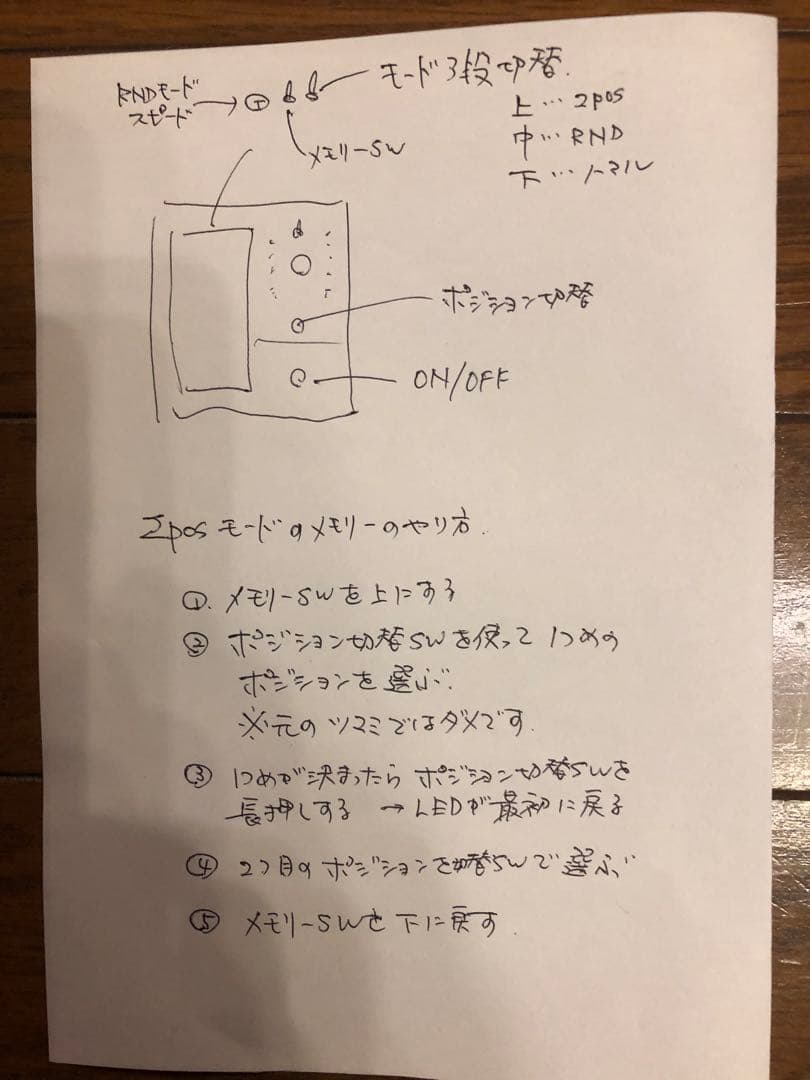 RNDモード
スピード
モード3段切替.
上…2pos
中…RND
下…ノーマル
メモリーSW
ポジション切替
ON/OFF
2posモードのメモリーのやり方.
①. メモリーSWを上にする
② ポジション切替SWを使って1つめの
ポジションを選ぶ.
※元のツマミではダメです.
③ 1つめが決まったらポジション切替SWを
長押しする → LEDが最初に戻る
④ 2つ目のポジションを切替SWで選ぶ
⑤ メモリーSWを下に戻す.